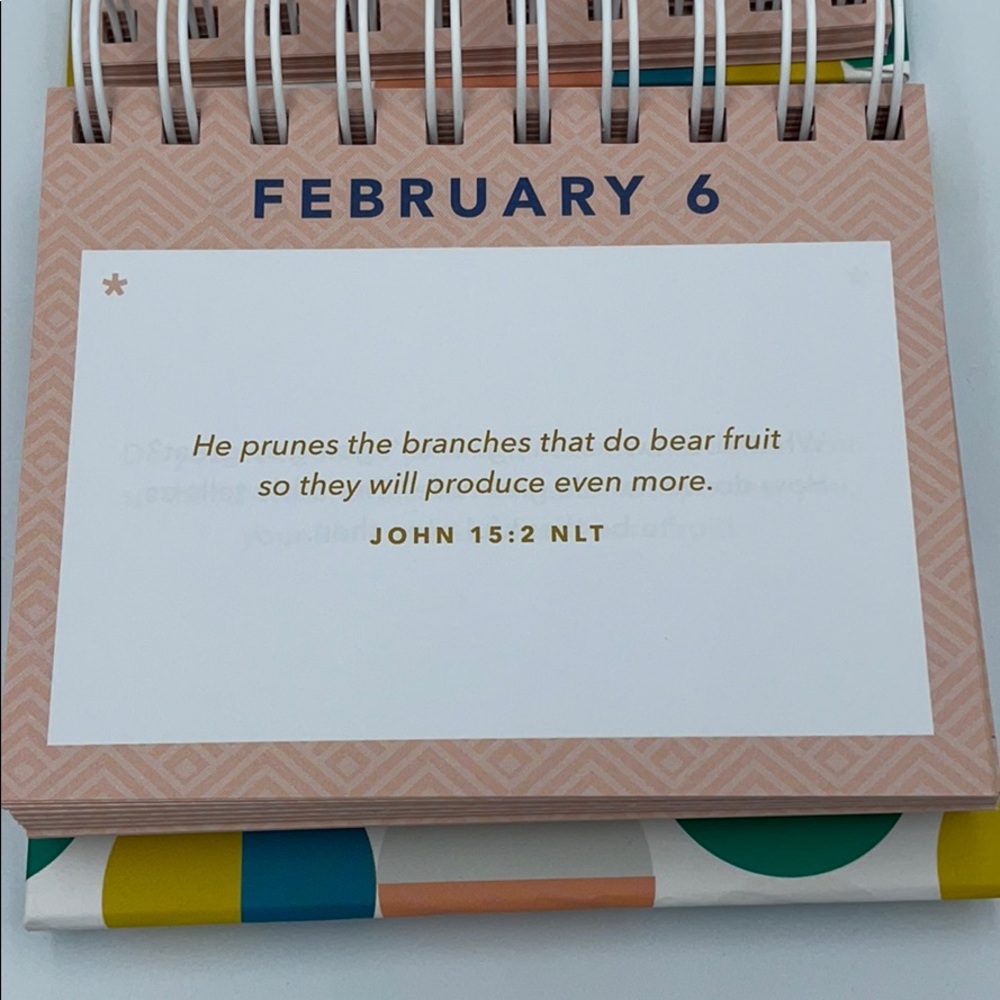 FEBRUARY 6
*
He prunes the branches that do bear fruit
so they will produce even more.
JOHN 15:2 NLT